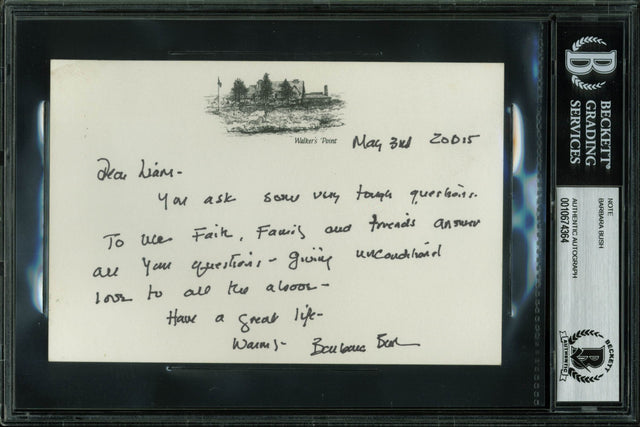 Walker's Point
May 3rd 20015
Dear Liam-
You ask some very tough questions.
To me Faith, Family and friends answer
all your questions - giving unconditional
love to all the above -
Have a great life -
Warmly- Barbara Bush
B
BECKETT
GRADING
SERVICES
NOTE
BARBARA BUSH
AUTHENTIC AUTOGRAPH
0010674364
BECKETT
B
AUTHENTIC